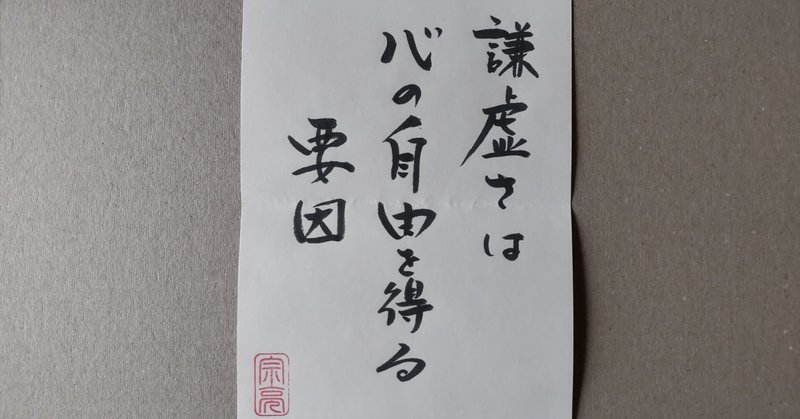 謙虚さは
心の自由を得る
要因
宗亮